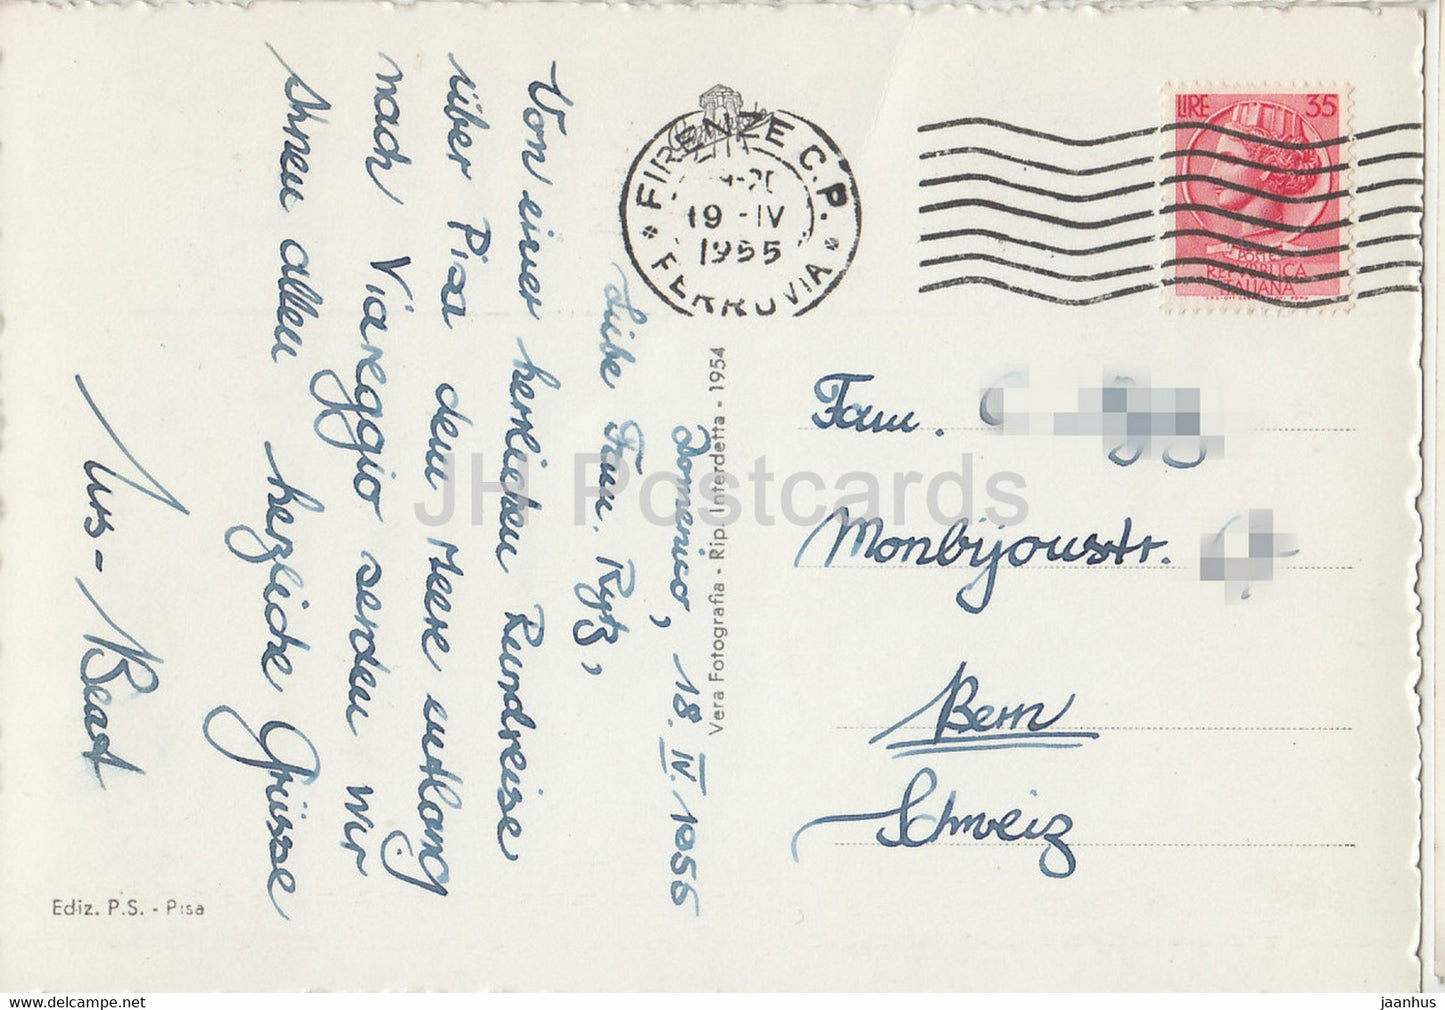 FIRENZE C.P.
19-IV
1955
FERROVIA
LIRE 35
POSTE
REPUBBLICA
ITALIANA
Domenico, 18. IV. 1955
Liebe Fam. Rytz,
Von einer herrlichen Rundreise
über Pisa dem Meere entlang
nach Viareggio senden wir
Ihnen allen herzliche Grüsse
Urs - Beat
Vera Fotografia - Rip. Interdetta - 1954
Fam.
Monbijoustr.
Bern
Schweiz
Ediz. P.S. - Pisa
JH Postcards
www.delcampe.net
jaanhus